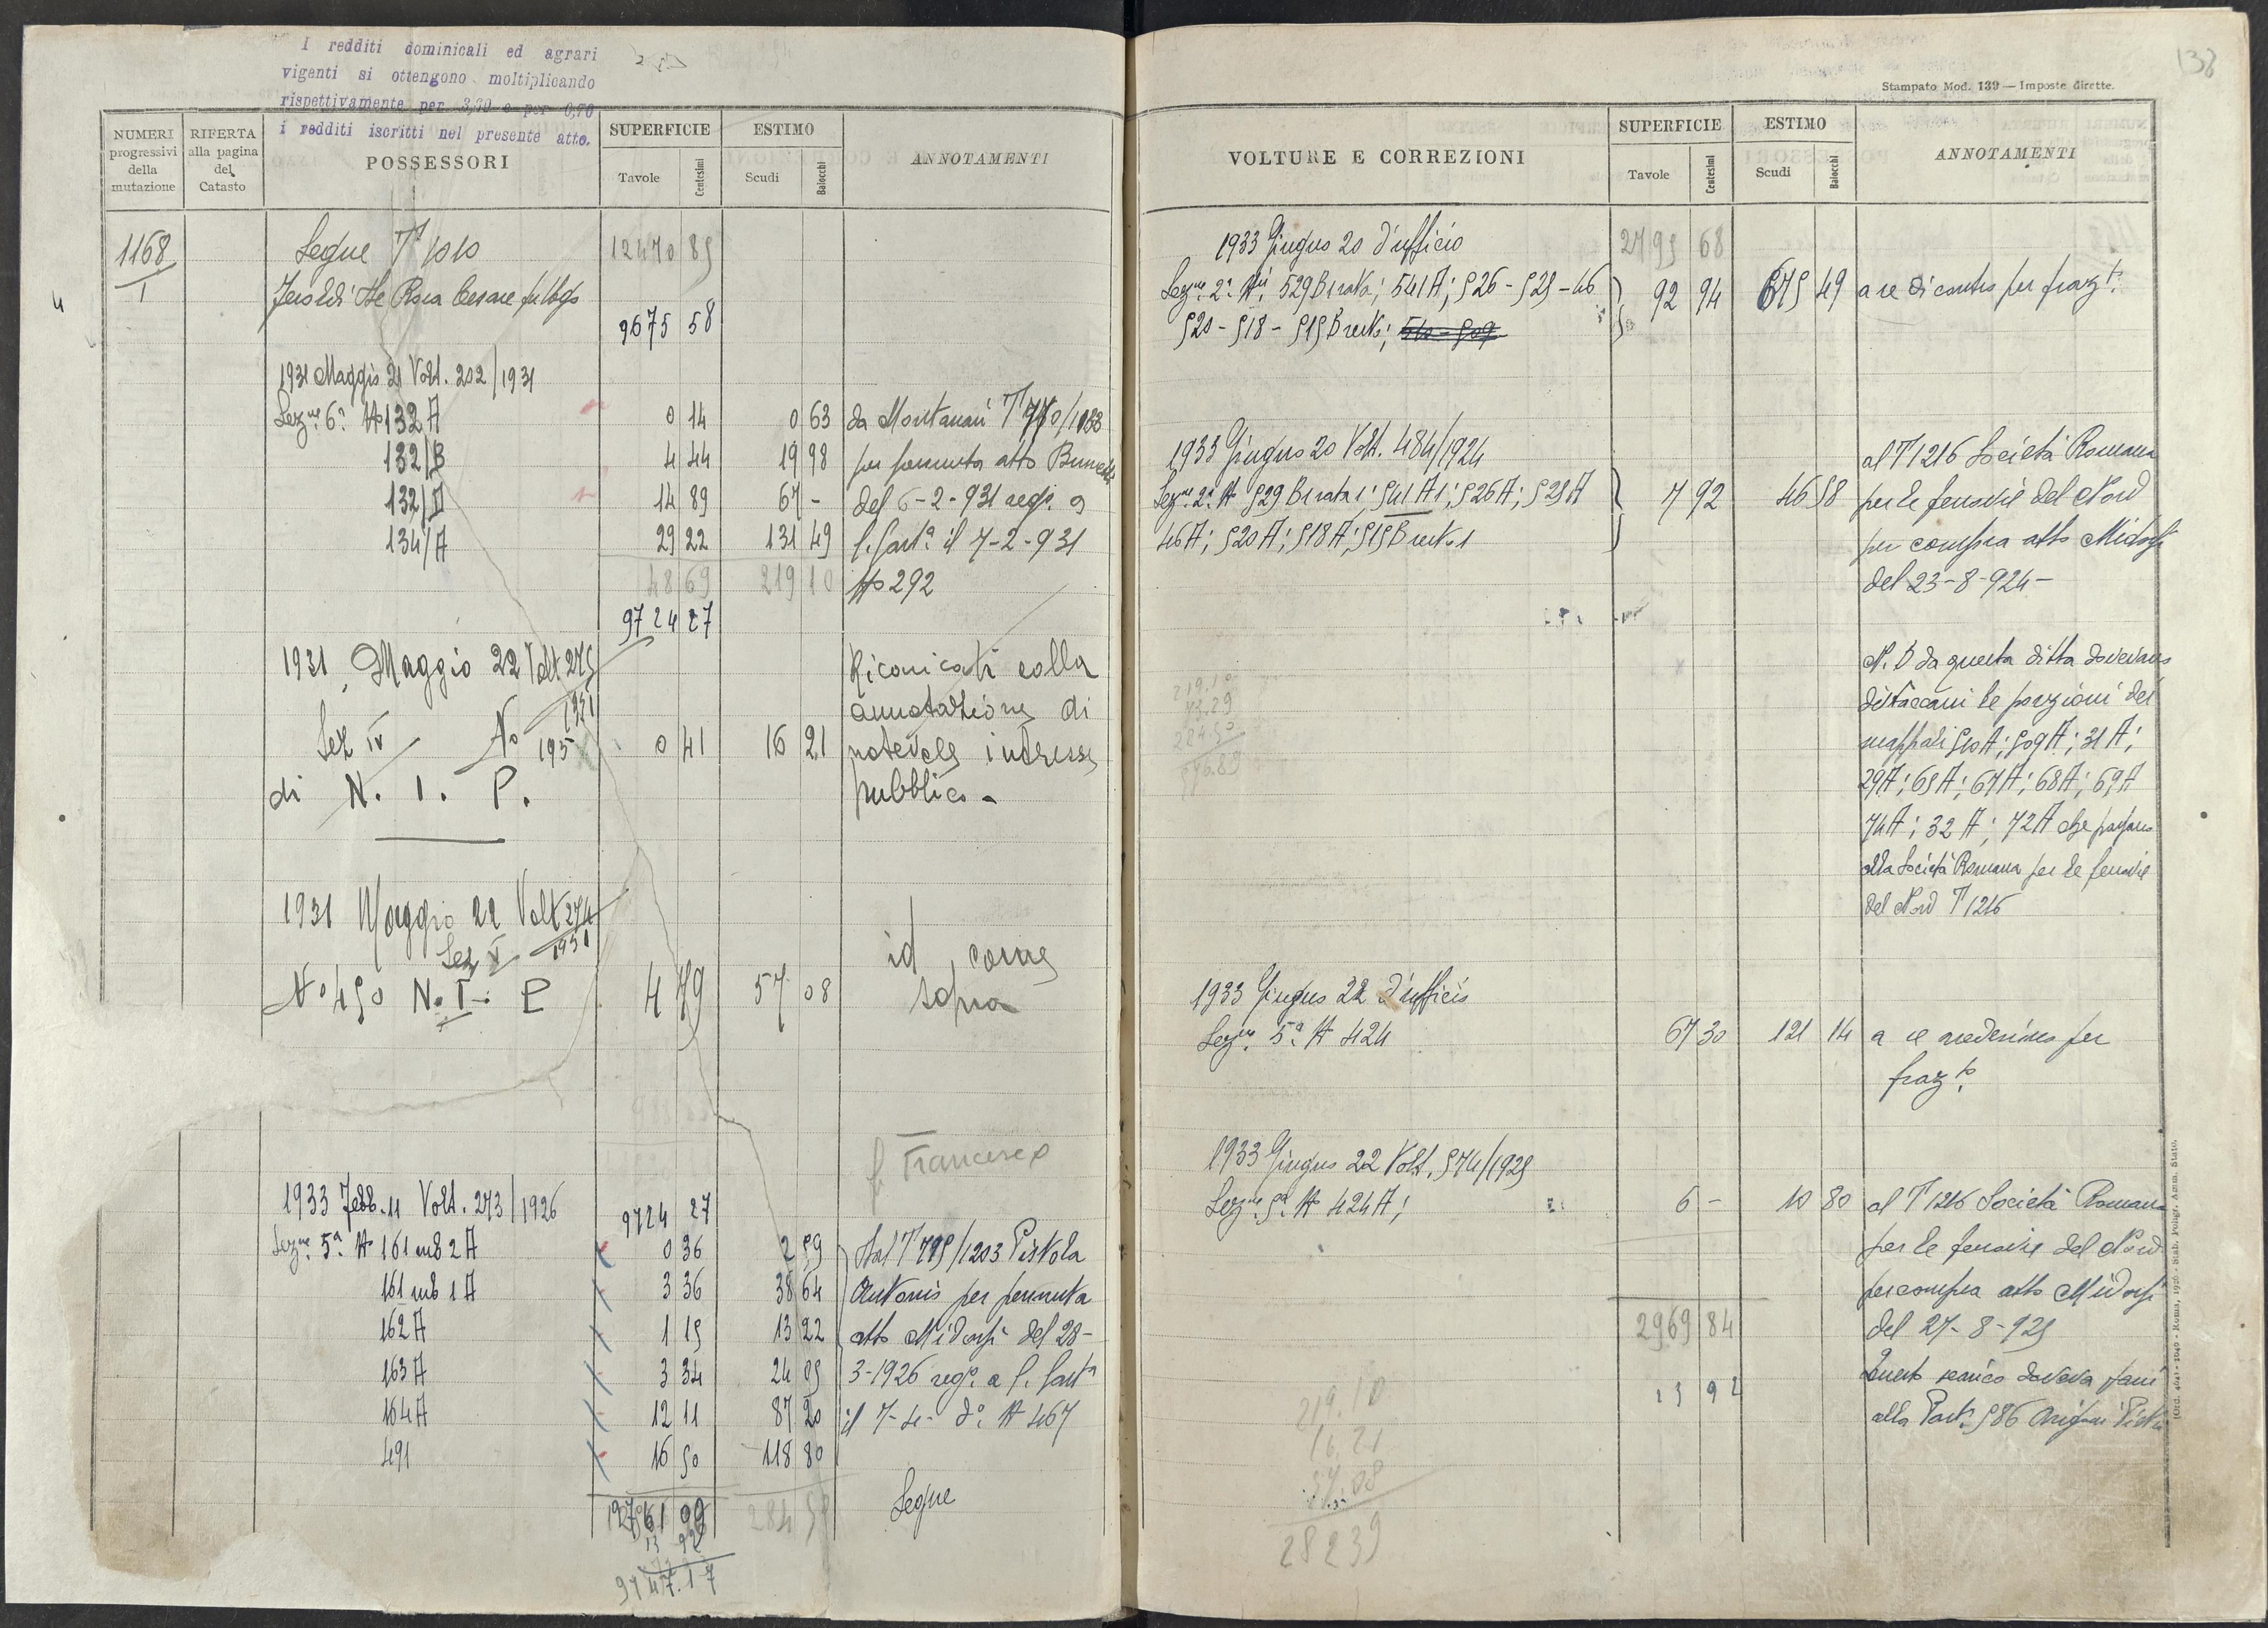 I redditi dominicali ed agrari
vigenti si ottengono moltiplicando
rispettivamente per 3,30 e per 0,70
i redditi iscritti nel presente atto.
NUMERI progressivi della mutazione
RIFERTA alla pagina del Catasto
POSSESSORI
SUPERFICIE
Tavole Centesimi
ESTIMO
Scudi Baiocchi
ANNOTAMENTI
1168/1 Segue T 1010 12470 85
9675 58
1931 Maggio 21 Volt. 202/1931
Sezne 6a No 132 A 0 14 0 63 da Montanari
132/B 4 44 19 98 per permuta atto
132/D 14 89 67 - del 6-2-931
134/A 29 22 131 49 il 7-2-931
48 69 219 10 No 292
9724 27
1931 Maggio 22 Volt 275/1931
Sez IV No 195 0 41 16 21
di N. I. P.
annotazione di
notevole interesse
pubblico -
1931 Maggio 22 Volt 274/1931
Sez V
No 450 N. I. P 4 79 57 08 id come sopra
f. Francesco
1933 Febb. 11 Volt. 273/1926 9724 27
Sezne 5a No 161 sub 2 A 0 36 2 59 Dal T 795/1203 Pistola
161 sub 1 A 3 36 38 64 Antonio per permuta
162 A 1 15 13 22 atto Midossi del 28-
163 A 3 34 24 05 3-1926 reg. a
164 A 12 11 87 20 il 7-4- do No 467
491 16 50 118 80
Segue
9747.17
138
Stampato Mod. 139 — Imposte dirette.
VOLTURE E CORREZIONI
SUPERFICIE
Tavole Centesimi
ESTIMO
Scudi Baiocchi
ANNOTAMENTI
1933 Giugno 20 d'ufficio 2795 68
Sezne 2a Ni 529 B rata; 541 A; 526 - 525 - 46 92 94 675 49 a se per fraz.to
520 - 518 - 515 B
1933 Giugno 20 Volt. 484/1924 al T 1216 Società Romana
Sezne 2a No 529 B rata 1; 541 A1; 526 A; 525 A 7 92 46 58 per le ferrovie del Nord
46 A; 520 A; 518 A; 515 B per compra atto Midossi
del 23-8-924 -
219.10
73.29
N. B da questa ditta dovevano
distaccarsi le porzioni dei
mappali 510 A; 509 A; 31 A;
29 A; 65 A; 67 A; 68 A; 69 A
74 A; 32 A; 72 A che
alla Società Romana per le ferrovie
del Nord T 1216
1933 Giugno 22 d'ufficio
Sezne 5a No 424 67 30 121 14 a se medesimo per
fraz.to
1933 Giugno 22 Volt. 574/1925
Sezne 5a No 424 A; 6 - 10 80 al T 1216 Società Romana
per le ferrovie del Nord
per compra atto Midossi
2969 84 del 27-8-925
Questo scarico doveva farsi
alla Part. 586
219.10
16.21
57.08
28239